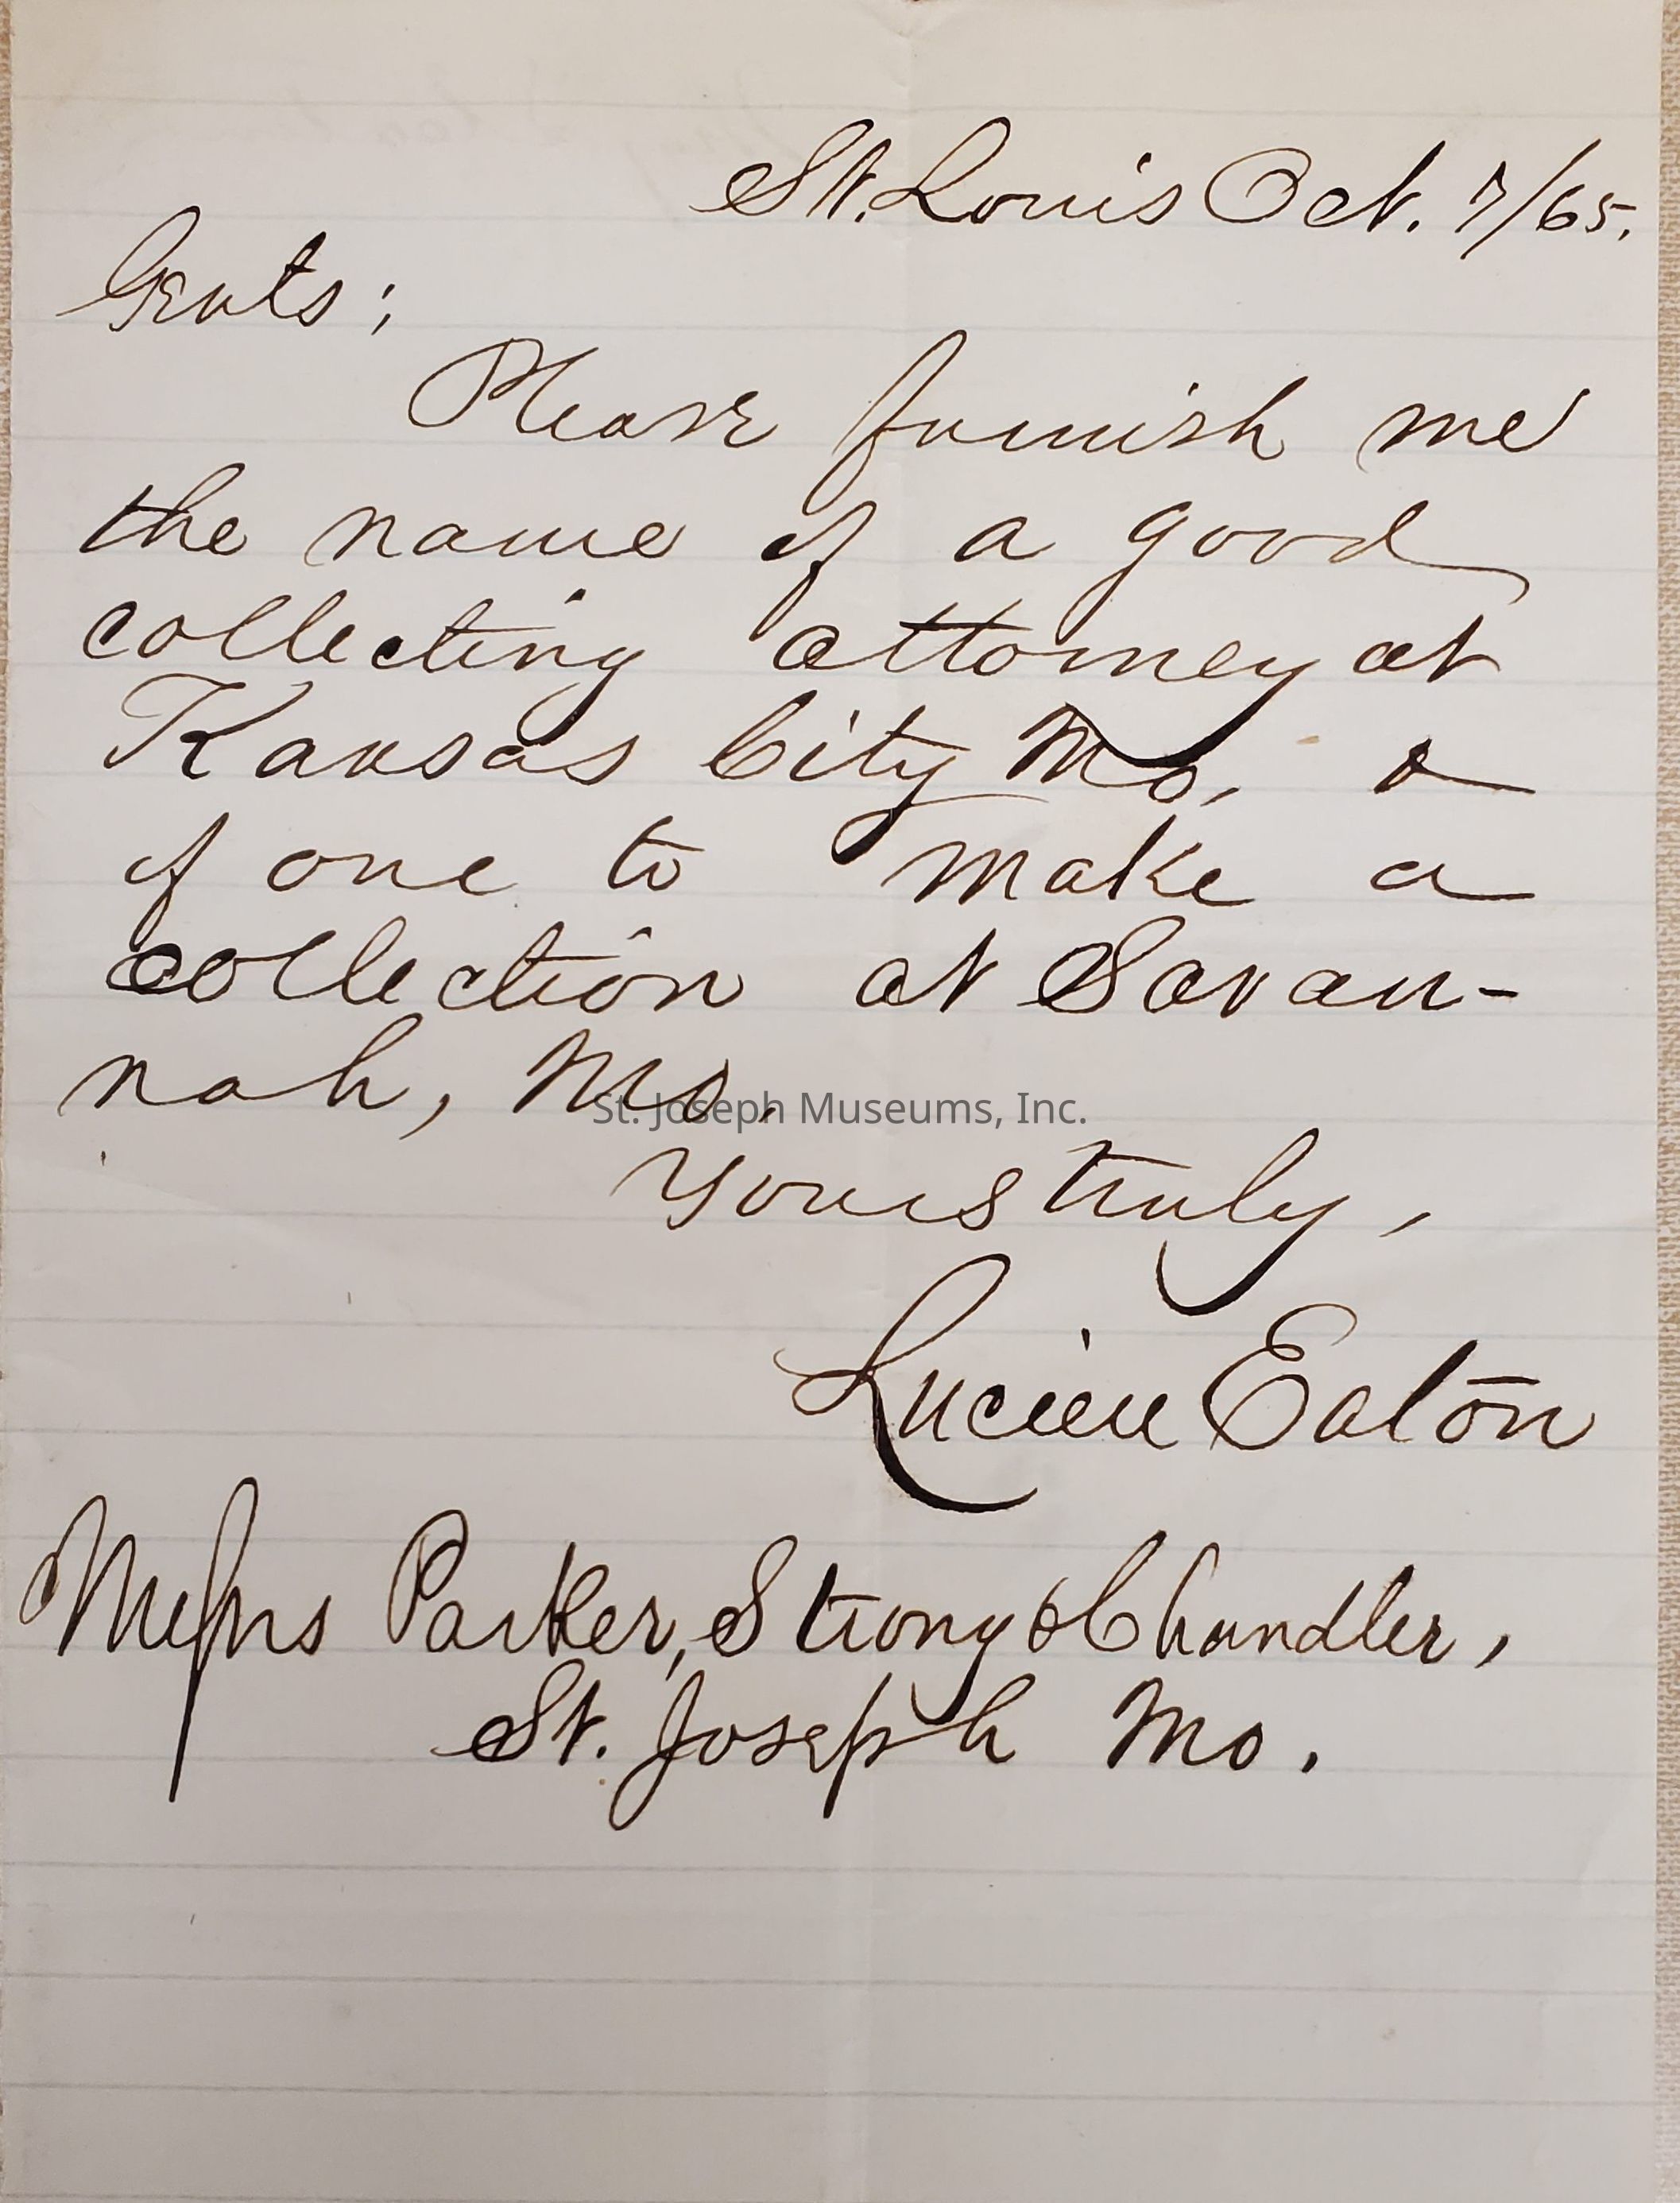 St. Louis Oct. 7/65.
Gents;
Please furnish me
the name of a good
collecting attorney at
Kansas City Mo, &
of one to make a
collection at Savan-
nah, Mo.
St. Joseph Museums, Inc.
Yours truly,
Lucien Eaton
Messrs Parker, Strong & Chandler,
St. Joseph Mo.